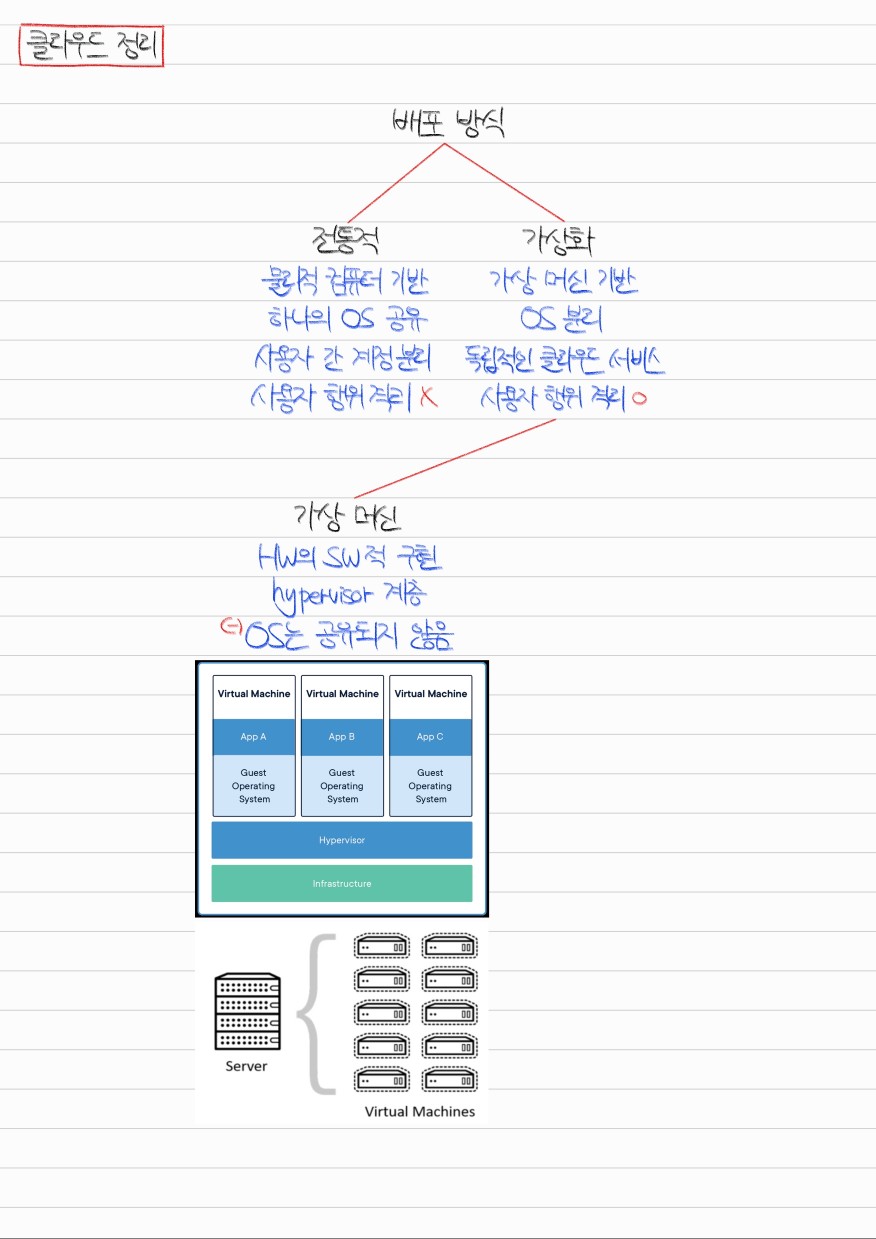 클라우드 정리
배포 방식
전통적
물리적 컴퓨터 기반
하나의 OS 공유
사용자 간 계정 분리
사용자 행위 격리 X
가상화
가상 머신 기반
OS 분리
독립적인 클라우드 서비스
사용자 행위 격리 O
가상 머신
HW의 SW적 구현
hypervisor 계층
(-) OS는 공유되지 않음
Virtual Machine
App A
Guest
Operating
System
Virtual Machine
App B
Guest
Operating
System
Virtual Machine
App C
Guest
Operating
System
Hypervisor
Infrastructure
Server
Virtual Machines